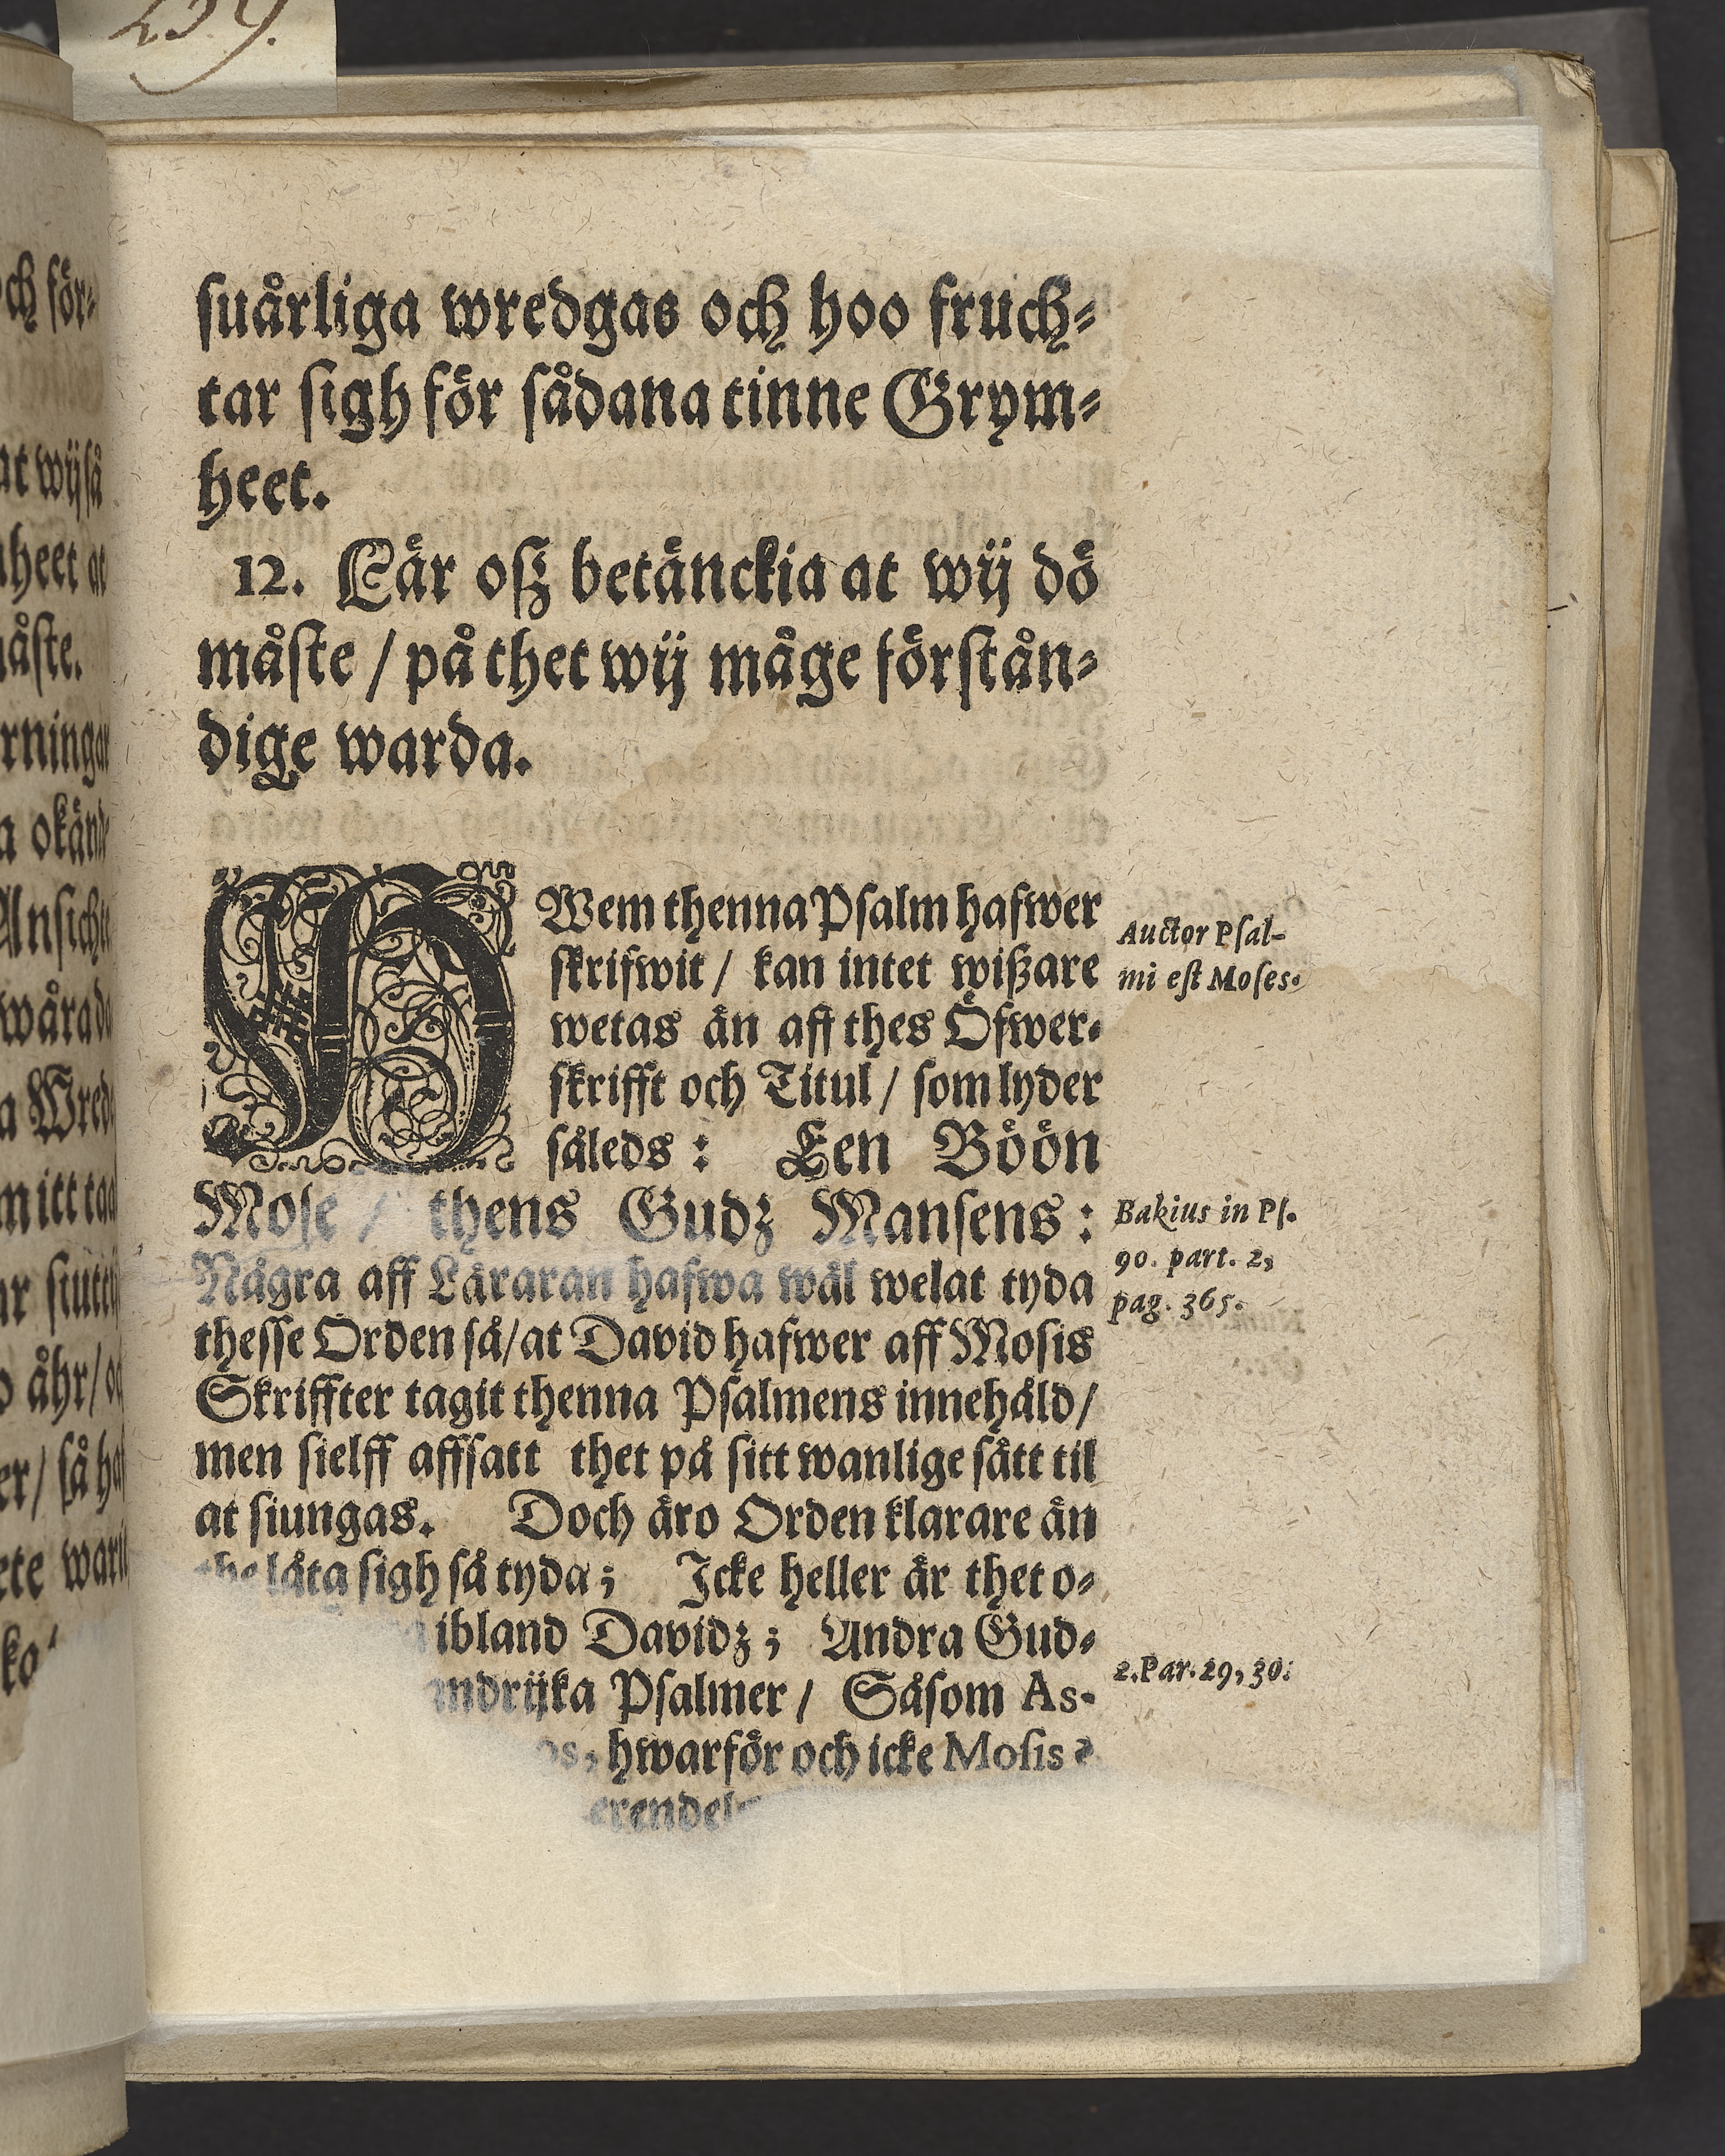 259.
suårliga wredgas och hoo fruch-
tar sigh för sådana tinne Grym-
heet.
12. Lär oß betänckia at wij dö
måste / på thet wij måge förstån-
dige warda.
HWem thenna Psalm hafwer
skrifwit / kan intet wißare
wetas än aff thes Öfwer-
skrifft och Titul / som lyder
således : Een Böön
Mose / thens Gudz Mansens :
Några aff Läraran hafwa wäl welat tyda
thesse Orden så / at David hafwer aff Mosis
Skriffter tagit thenna Psalmens innehåld /
men sielff affsatt thet på sitt wanlige sätt til
at siungas. Doch äro Orden klarare än
the låta sigh så tyda ; Icke heller är thet o-
ibland Davidz ; Andra Gud-
ndrijka Psalmer / Såsom As-
hwarför och icke Mosis ?
Auctor Psal-
mi est Moses.
Bakius in Ps.
90. part. 2,
pag. 365.
2. Par. 29, 30.
och för-
at wij så
heet at
åste.
rningar
a okänd
Ansichte
wåra da
a Wrede
m itt taal
ar siutti
åhr / oc
er / så haf
ete warit